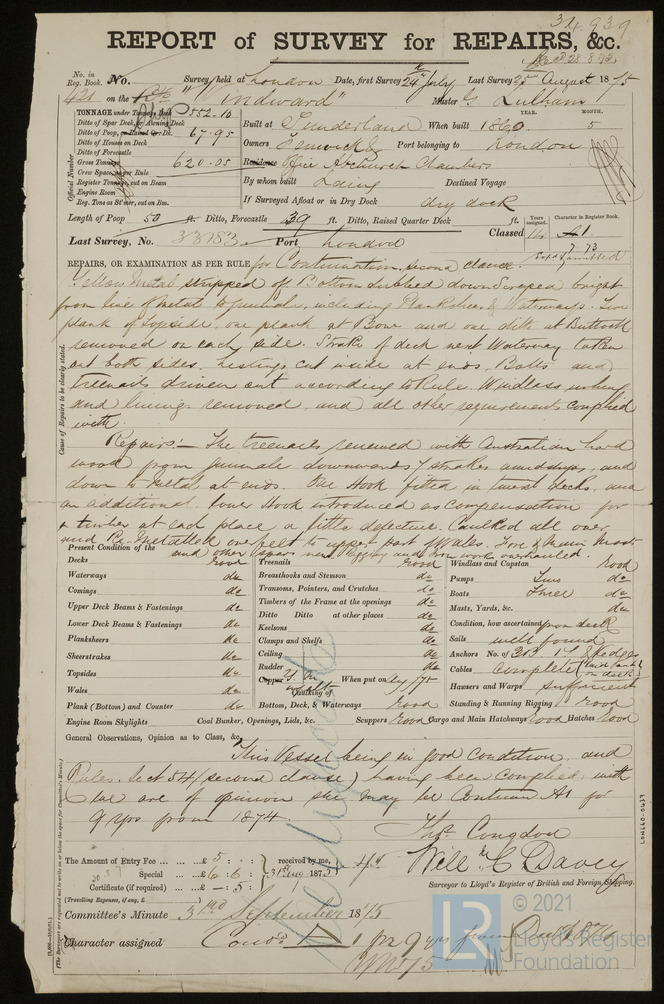 34939
REPORT of SURVEY for REPAIRS, &c.
No. in Reg. Book. No. Survey held at London Date, first Survey 24th July Last Survey 25 August 1875
421 on the Master G Lulham
TONNAGE under Tonnage Deck 552.10
Ditto of Spar Deck, or Awning Deck
Ditto of Poop, or Raised Qr. Dk. 67.95
Ditto of Houses on Deck
Ditto of Forecastle
Gross Tonnage 620.05
Cross Space, as per Rule
Register Tonnage, cut on Beam
Engine Room
Reg. Tons as St'mer, cut on Bm.
Official Number
YEAR. MONTH.
Built at Sunderland When built 1860. 5
Owners Port belonging to London
Residence Office Chambers
By whom built Laing Destined Voyage
If Surveyed Afloat or in Dry Dock dry dock
Length of Poop 50 ft. Ditto, Forecastle 39 ft. Ditto, Raised Quarter Deck ft.
Years assigned. Character in Register Book.
Last Survey, No. 33783. Port London Classed 14 A1
7.73
REPAIRS, OR EXAMINATION AS PER RULE for Continuation, second clause.
Yellow Metal stripped off Bottom bright
from line of metal to gunwale, including Planksheer & Waterways. Two
plank of topside, one plank at Bow and one ditto at Buttock
removed on each side. Strake of deck next Waterway taken
out both sides. Listings cut inside at ends. Bolts and
treenails driven out according to Rule. Windlass
and linings removed, and all other requirements complied
with.
Repairs:— The treenails renewed with Australian hard
wood from gunwale downwards 7 strakes amidships, and
down to metal at ends. One Hook fitted in tween decks, and
an additional lower Hook introduced as compensation for
a timber at each place a little defective. Caulked all over
and Re-metalled over felt to upper part of Wales. Fore & Main Mast
and other spars new, Rigging and iron work overhauled.
Cause of Repairs to be clearly stated.
Present Condition of the
Decks good
Waterways do
Comings do
Upper Deck Beams & Fastenings do
Lower Deck Beams & Fastenings do
Planksheers do
Sheerstrakes do
Topsides do
Wales do
Plank (Bottom) and Counter do
Engine Room Skylights
Treenails good
Breasthooks and Stemson do
Transoms, Pointers, and Crutches do
Timbers of the Frame at the openings do
Ditto Ditto at other places do
Keelsons do
Clamps and Shelfs do
Ceiling do
Rudder do
Copper When put on 75
Caulking of
Bottom, Deck, & Waterways good
Coal Bunker, Openings, Lids, &c. Scuppers good
Windlass and Capstan good
Pumps Two do
Boats Three do
Masts, Yards, &c. do
Condition, how ascertained from deck
Sails well found
Anchors No. of
Cables complete
Hawsers and Warps sufficient
Standing & Running Rigging good
Cargo and Main Hatchways good Hatches good
General Observations, Opinion as to Class, &c.
This Vessel being in good condition, and
Rules. Sect 54 (second clause) having been complied with
We are of opinion she may be Continued A1 for
9 yrs from 1874.
Thos. Congdon
Will M C Davey
Surveyor to Lloyd's Register of British and Foreign Shipping.
The Amount of Entry Fee ... £5 : : received by me,
Special ... £6 : 6 : 31st Aug 1875
Certificate (if required) ... £ - : 5 :
(Travelling Expenses, if any, £ )
Committee's Minute 3rd September 1875
Character assigned
LON660-0437
© 2021
Lloyd's Register
Foundation